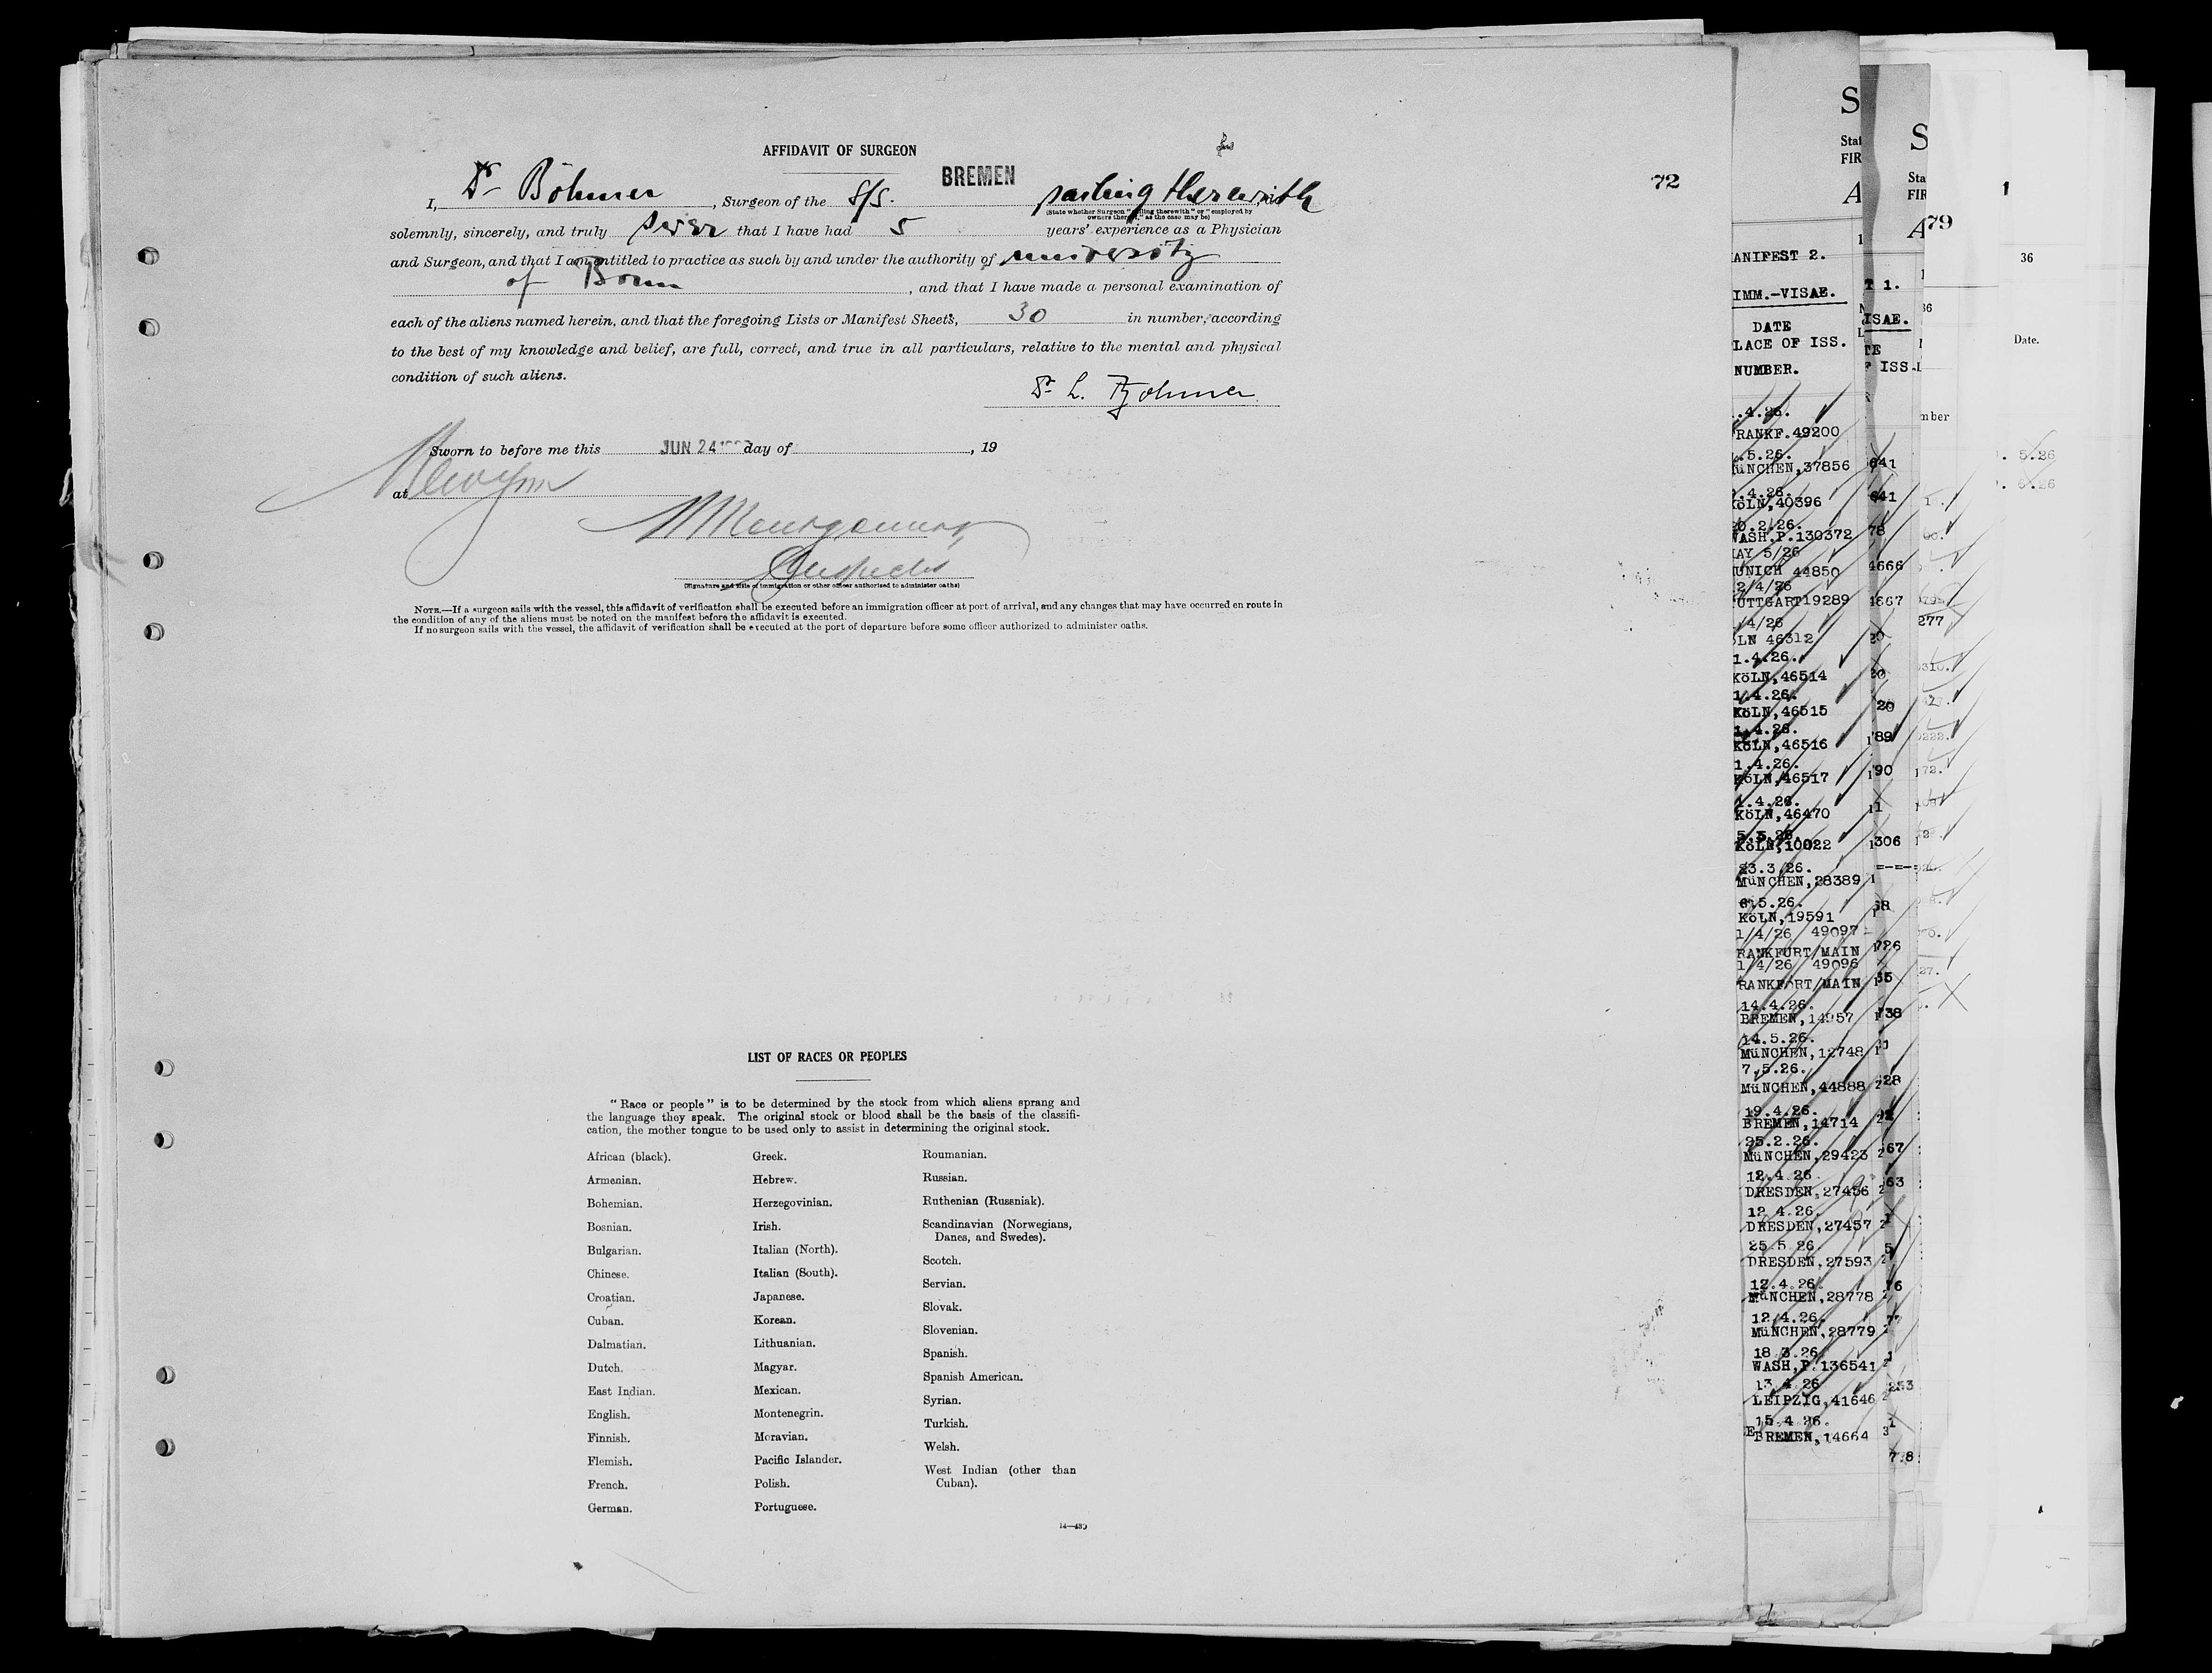 AFFIDAVIT OF SURGEON
72
I, Dr Böhmer, Surgeon of the S/S. BREMEN sailing therewith
(State whether Surgeon "sailing therewith" or "employed by owners thereof," as the case may be)
solemnly, sincerely, and truly swear that I have had 5 years' experience as a Physician
and Surgeon, and that I am entitled to practice as such by and under the authority of university
of Bonn, and that I have made a personal examination of
each of the aliens named herein, and that the foregoing Lists or Manifest Sheets, 30 in number, according
to the best of my knowledge and belief, are full, correct, and true in all particulars, relative to the mental and physical
condition of such aliens.
Dr L. Böhmer
Sworn to before me this JUN 24 day of , 19
at
Inspector
(Signature and title of immigration or other officer authorized to administer oaths)
NOTE.—If a surgeon sails with the vessel, this affidavit of verification shall be executed before an immigration officer at port of arrival, and any changes that may have occurred en route in
the condition of any of the aliens must be noted on the manifest before the affidavit is executed.
If no surgeon sails with the vessel, the affidavit of verification shall be executed at the port of departure before some officer authorized to administer oaths.
LIST OF RACES OR PEOPLES
"Race or people" is to be determined by the stock from which aliens sprang and
the language they speak. The original stock or blood shall be the basis of the classifi-
cation, the mother tongue to be used only to assist in determining the original stock.
African (black).
Armenian.
Bohemian.
Bosnian.
Bulgarian.
Chinese.
Croatian.
Cuban.
Dalmatian.
Dutch.
East Indian.
English.
Finnish.
Flemish.
French.
German.
Greek.
Hebrew.
Herzegovinian.
Irish.
Italian (North).
Italian (South).
Japanese.
Korean.
Lithuanian.
Magyar.
Mexican.
Montenegrin.
Moravian.
Pacific Islander.
Polish.
Portuguese.
Roumanian.
Russian.
Ruthenian (Russniak).
Scandinavian (Norwegians,
Danes, and Swedes).
Scotch.
Servian.
Slovak.
Slovenian.
Spanish.
Spanish American.
Syrian.
Turkish.
Welsh.
West Indian (other than
Cuban).
S
Stat
FIR
A
ANIFEST 2.
IMM.-VISAE.
DATE
LACE OF ISS.
NUMBER.
.4.26.
RANKF.49200
.5.26.
ÜNCHEN,37856
.4.26.
KÖLN,40396
20.2.26.
WASH.P.130372
MAY 5/26
UNICH 44850
2/4/26
UTTGART19289
/4/26
LN 46312
1.4.26.
KÖLN,46514
1.4.26.
KÖLN,46515
1.4.26.
KÖLN,46516
1.4.26.
KÖLN,46517
1.4.26.
KÖLN,46470
5.5.26.
KÖLN,10022
23.3.26.
MüNCHEN,28389
6.5.26.
KÖLN,19591
1/4/26 49097
RANKFURT/MAIN
1/4/26 49096
RANKFORT/MAIN
14.4.26.
BREMEN,14957
14.5.26.
MüNCHEN,12748
7.5.26.
MüNCHEN,44888
19.4.26.
BREMEN,14714
25.2.26.
MüNCHEN,29423
12.4.26
DRESDEN,27456
12.4.26.
DRESDEN,27457
25.5.26.
DRESDEN,27593
12.4.26.
MüNCHEN,28778
12.4.26.
MüNCHEN,28779
18.3.26.
WASH,P.136541
13.4.26
LEIPZIG,41646
15.4.26.
BREMEN,14664
S
Sta
FIR
A
79
T 1.
ISAE.
TE
ISS.
641
641
78
4666
4667
20
20
20
89
90
11
306
68
726
738
277
1
36
Date.
mber
5.26
6.26